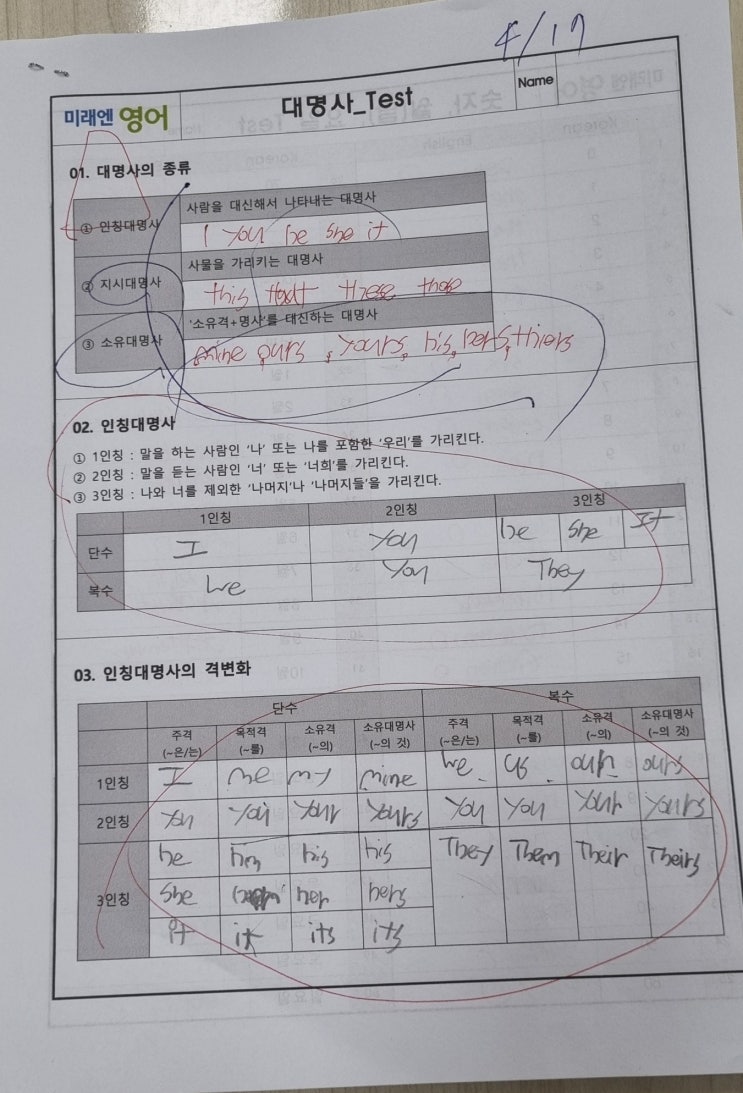 4/17
미래엔 영어 대명사_Test Name
01. 대명사의 종류
① 인칭대명사 사람을 대신해서 나타내는 대명사
I you he she it
② 지시대명사 사물을 가리키는 대명사
this that these those
③ 소유대명사 '소유격+명사'를 대신하는 대명사
mine, ours, yours, his, hers, thiers
02. 인칭대명사
① 1인칭 : 말을 하는 사람인 '나' 또는 나를 포함한 '우리'를 가리킨다.
② 2인칭 : 말을 듣는 사람인 '너' 또는 '너희'를 가리킨다.
③ 3인칭 : 나와 너를 제외한 '나머지'나 '나머지들'을 가리킨다.
1인칭 2인칭 3인칭
단수 I You he she It
복수 We You They
03. 인칭대명사의 격변화
단수 복수
주격 목적격 소유격 소유대명사 주격 목적격 소유격 소유대명사
(~은/는) (~를) (~의) (~의 것) (~은/는) (~를) (~의) (~의 것)
1인칭 I me my mine we us our ours
2인칭 You You Your Yours You You Your Yours
3인칭 he him his his They Them Their Theirs
she her hers
it it its its